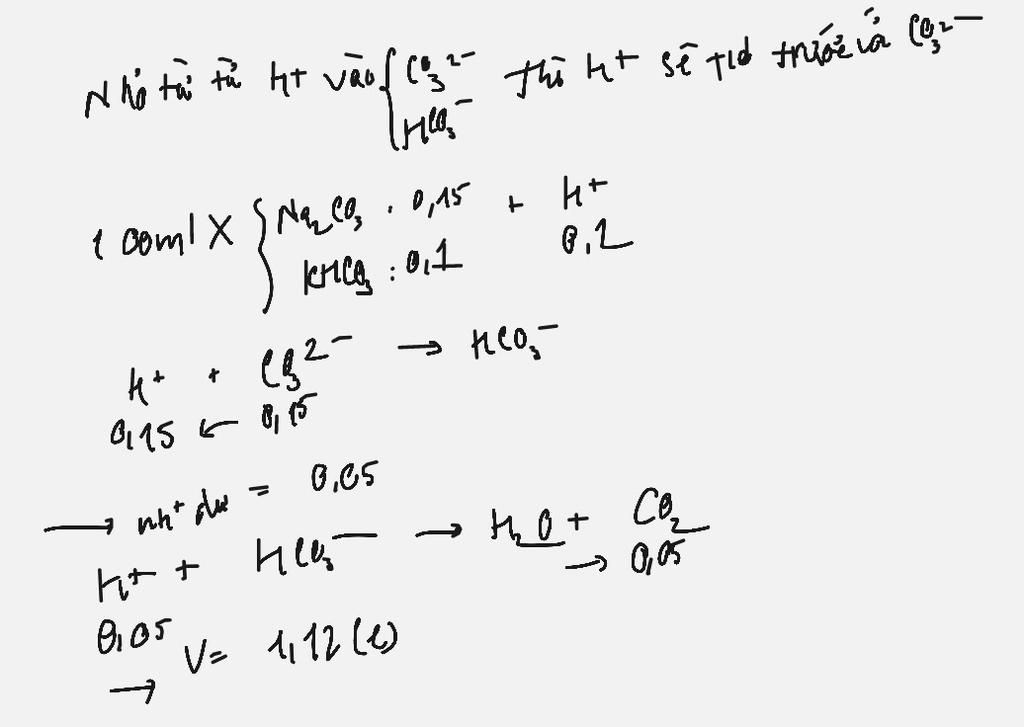 Nhỏ từ từ H+ vào { CO₃²⁻ HCO₃⁻ thì H+ sẽ t/d trước với CO₃²⁻
100ml X { Na₂CO₃ : 0,15 KHCO₃ : 0,1 + H+ 0,2
H+ + CO₃²⁻ → HCO₃⁻
0,15 ← 0,15
→ nH+ dư = 0,05
H+ + HCO₃⁻ → H₂O + CO₂
0,05 → 0,05
→ V = 1,12 (l)